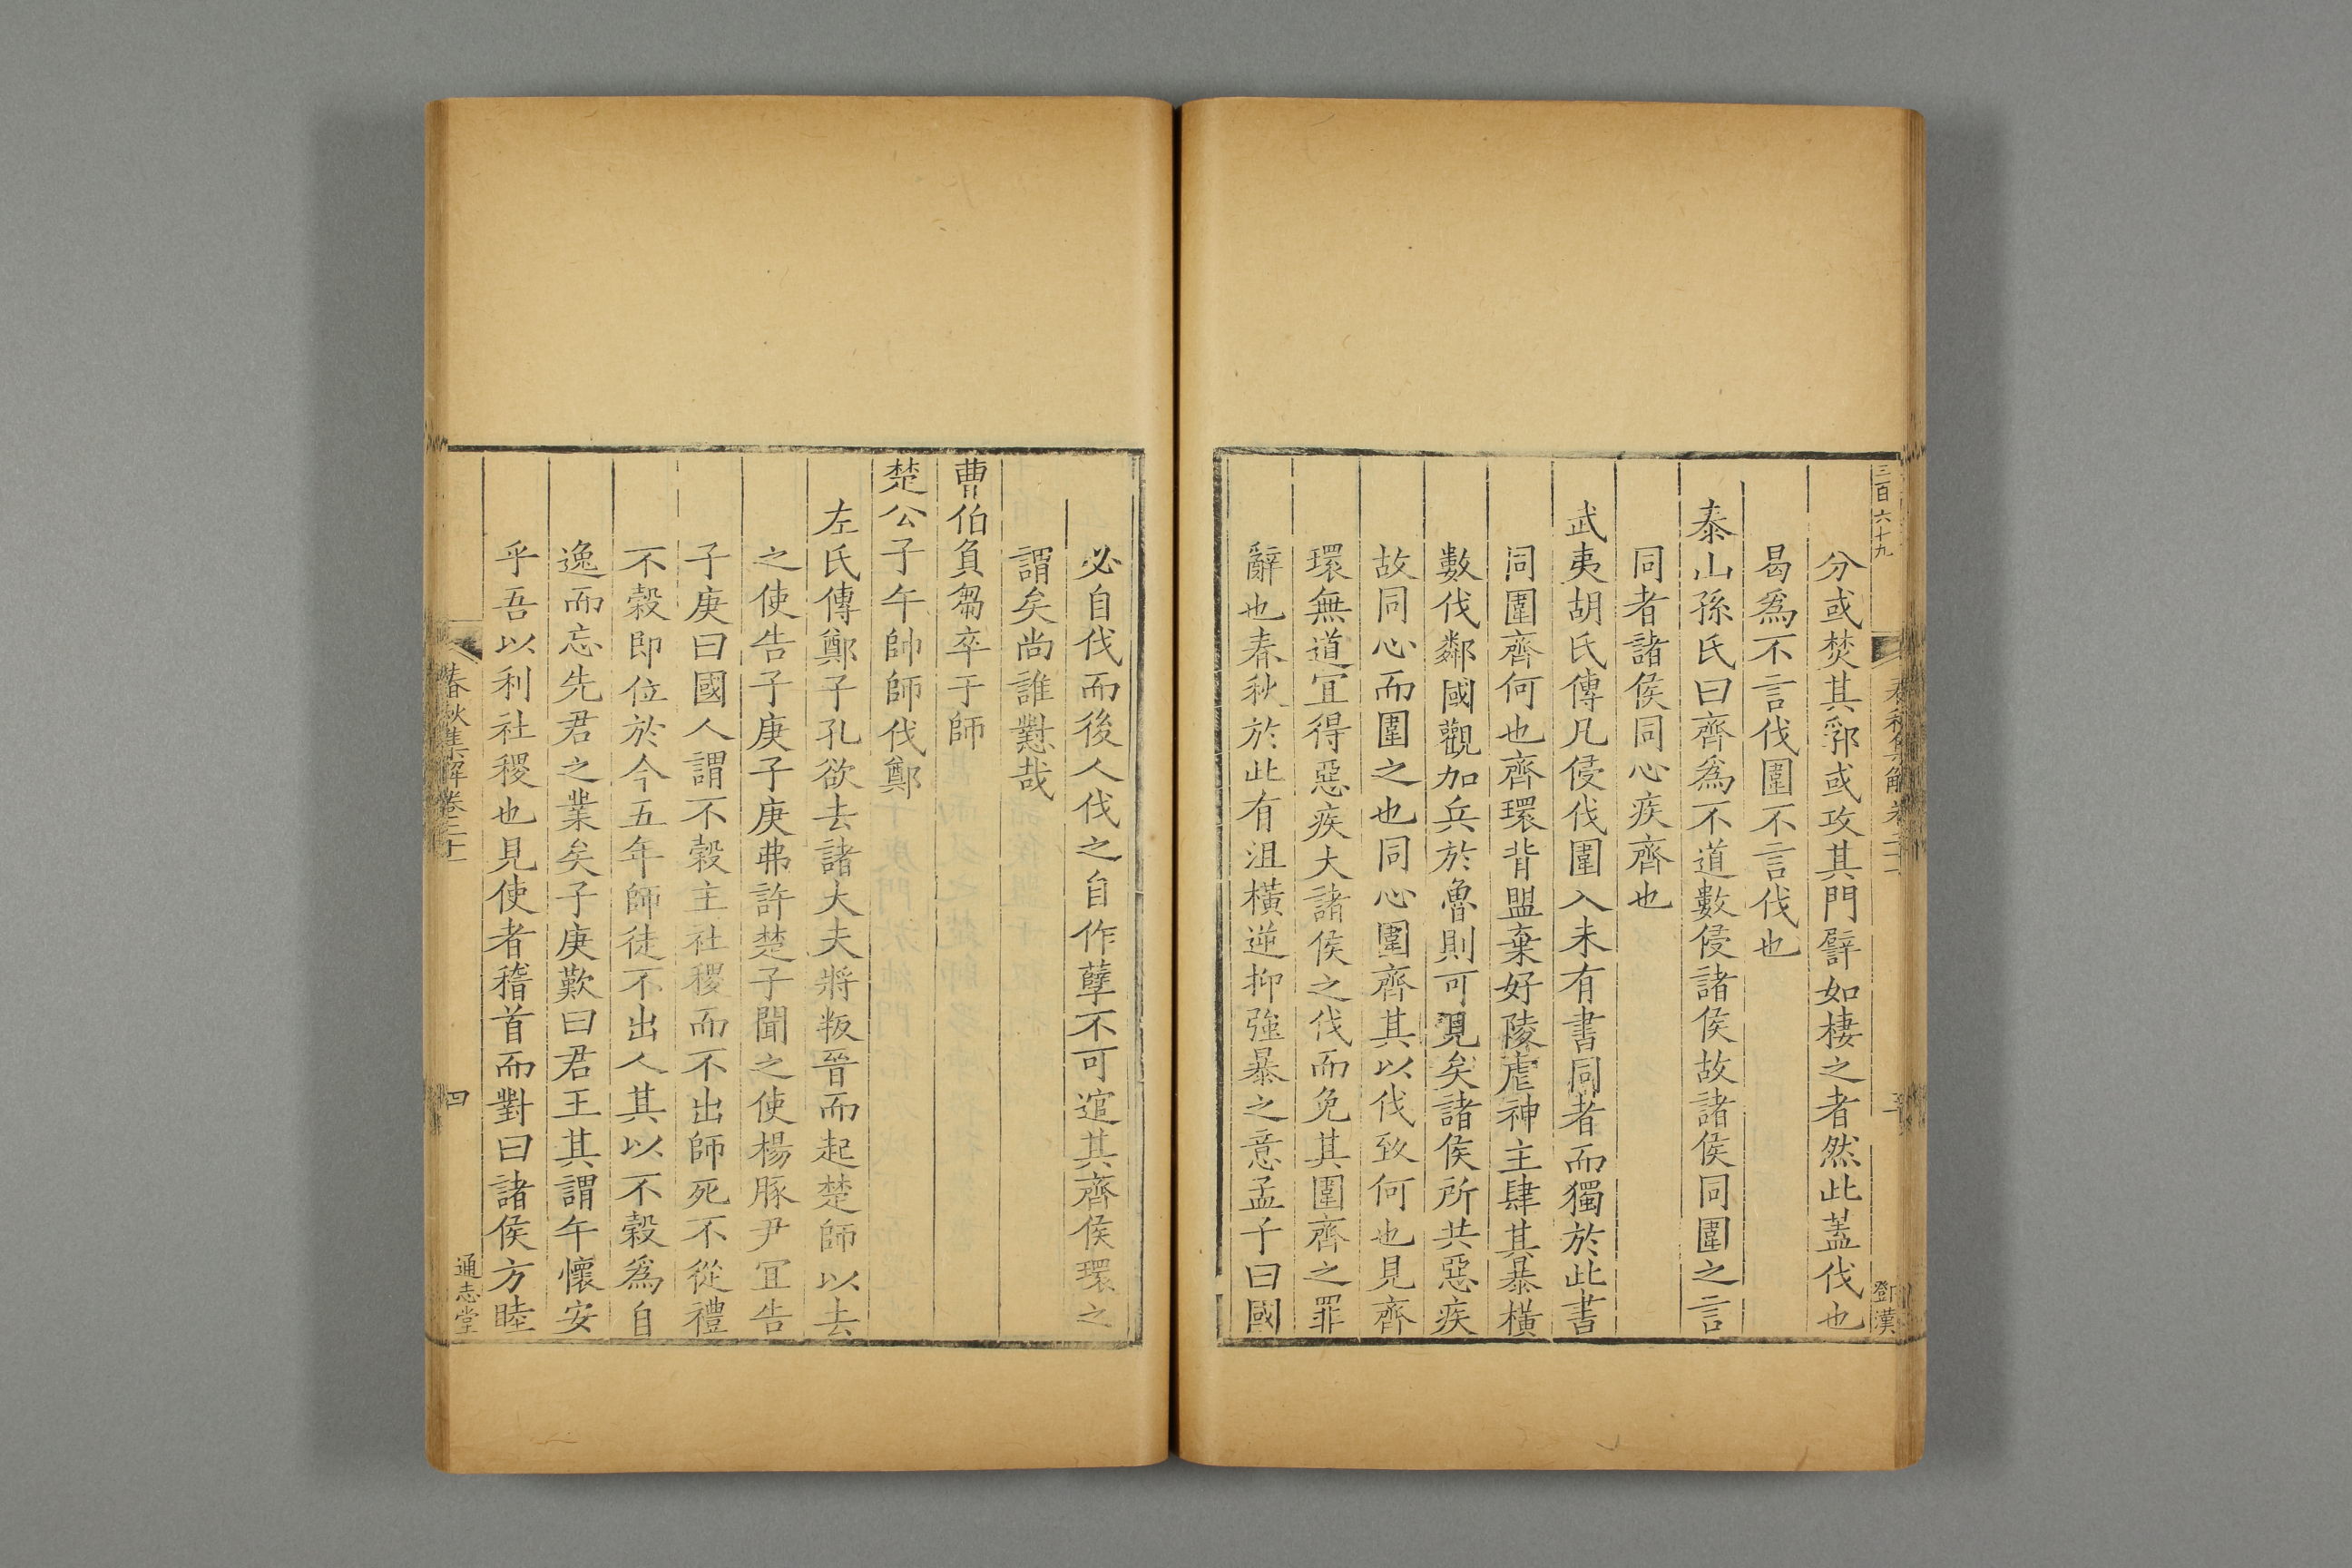 三百六十九
鄧漢
分或焚其郛或攻其門譬如棲之者然此蓋伐也
曷爲不言伐圍不言伐也
泰山孫氏曰齊爲不道數侵諸侯故諸侯同圍之言
同者諸侯同心疾齊也
武夷胡氏傳凡侵伐圍入未有書同者而獨於此書
同圍齊何也齊環背盟棄好陵虐神主肆其暴橫
數伐鄰國觀加兵於魯則可見矣諸侯所共惡疾
故同心而圍之也同心圍齊其以伐致何也見齊
環無道宜得惡疾大諸侯之伐而免其圍齊之罪
辭也春秋於此有沮橫逆抑強暴之意孟子曰國
必自伐而後人伐之自作孽不可逭其齊侯環之
謂矣尚誰懟哉
曹伯負芻卒于師
楚公子午帥師伐鄭
左氏傳鄭子孔欲去諸大夫將叛晉而起楚師以去
之使告子庚子庚弗許楚子聞之使楊豚尹宜告
子庚曰國人謂不穀主社稷而不出師死不從禮
不穀即位於今五年師徒不出人其以不穀爲自
逸而忘先君之業矣子庚歎曰君王其謂午懷安
乎吾以利社稷也見使者稽首而對曰諸侯方睦
春秋集解卷二十
四
通志堂